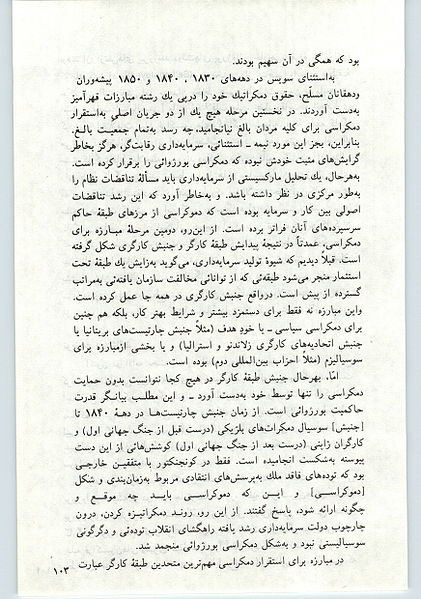 بود که همگی در آن سهیم بودند.
به‌استثنای سویس در دهه‌های ۱۸۳۰ ، ۱۸۴۰ و ۱۸۵۰ پیشه‌وران
ودهقانان مسلّح، حقوق دمکراتیك خود را درپی یك رشته مبارزات قهرآمیز
به‌دست آوردند. در نخستین مرحله هیچ یك از دو جریان اصلی به‌استقرار
دمکراسی برای کلیه مردان بالغ نیانجامید، چه رسد به‌تمام جمعیّت بالغ.
بنابراین، بجز این مورد نیمه ــ استثنائی، سرمایه‌داری رقابت‌گر، هرگز بخاطر
گرایش‌های مثبت خودش نبوده که دمکراسی بورژوائی را برقرار کرده است.
به‌هرحال، یك تحلیل مارکسیستی از سرمایه‌داری باید مسألهٔ تناقضات نظام را
به‌طور مرکزی در نظر داشته باشد. و به‌خاطر آورد که این رشد تناقضات
اصولی بین کار و سرمایه بوده است که دموکراسی از مرزهای طبقهٔ حاکم
سرسپرده‌های آنان فراتر برده است. از این‌رو، دومین مرحلهٔ مبارزه برای
دمکراسی، عمدتاً در نتیجهٔ پیدایش طبقهٔ کارگر و جنبش کارگری شکل گرفته
است. قبلاً دیدیم که شیوهٔ تولید سرمایه‌داری، می‌گوید به‌زایش یك طبقهٔ تحت
استثمار منجر می‌شود طبقه‌ئی که از توانائی مخالفت سازمان یافته‌ئی به‌مراتب
گسترده از پیش است. درواقع جنبش کارگری در همه جا عمل کرده است.
واین مبارزه نه فقط برای دستمزد بیشتر و شرایط بهتر کار، بلکه هم چنین
برای دمکراسی سیاسی ــ یا خودِ هدف (مثلاً جنبش چارتیست‌های بریتانیا یا
جنبش اتحادیه‌های کارگری زلاندنو و استرالیا) و یا بخشی ازمبارزه برای
سوسیالیزم (مثلاً احزاب بین‌المللی دوم) بوده است.
امّا، بهرحال جنبش طبقهٔ کارگر در هیچ کجا نتوانست بدون حمایت
دمکراسی را تنها توسط خود به‌دست آورد ــ و این مطلب بیانگر قدرت
حاکمیت بورژوائی است. از زمان جنبش چارتیست‌ها در دههٔ ۱۸۴۰ تا
[جنبش] سوسیال دمکرات‌های بلژیکی (درست قبل از جنگ جهانی اول) و
کارگران ژاپنی (درست بعد از جنگ جهانی اول) کوشش‌هائی از این دست
پیوسته به‌شکست انجامیده است. فقط در کونجنکتور با متفقین خارجی
بود که توده‌های فاقد ملك به‌پرسش‌های انتقادی مربوط به‌زمان‌بندی و شکل
[دموکراسی] و این که دموکراسی باید چه موقع و
چگونه ارائه شود، پاسخ گفتند. از این رو، روند دمکراتیزه کردن، درون
چارچوب دولت سرمایه‌داری رشد یافته راهگشای انقلاب توده‌ئی و دگرگونی
سوسیالیستی نبود و به‌شکل دمکراسی بورژوائی منجمد شد.
در مبارزه برای استقرار دمکراسی مهم‌ترین متحدین طبقهٔ کارگر عبارت
۱۰۳